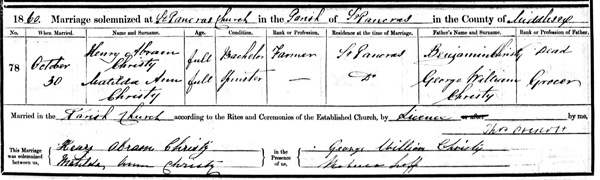 1860. Marriage solemnized at St Pancras Church in the Parish of St Pancras in the County of Middlesex
No. When Married. Name and Surname. Age. Condition. Rank or Profession. Residence at the time of Marriage. Father's Name and Surname. Rank or Profession of Father.
78 October 30 Henry Abram Christy full Bachelor Farmer St Pancras Benjamin Christy Dead
Matilda Ann Christy full Spinster — Do George William Christy Grocer
Married in the Parish Church according to the Rites and Ceremonies of the Established Church, by Licence by me,
Thos
This Marriage was solemnized between us, Henry Abram Christy in the Presence of us, George William Christy
Matilda Ann Christy